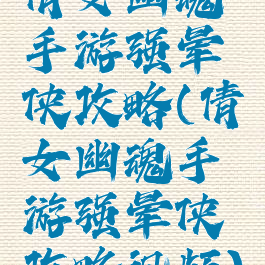 倩女幽魂
手游强晕
侠攻略(倩
女幽魂手
游强晕侠
攻略视频)